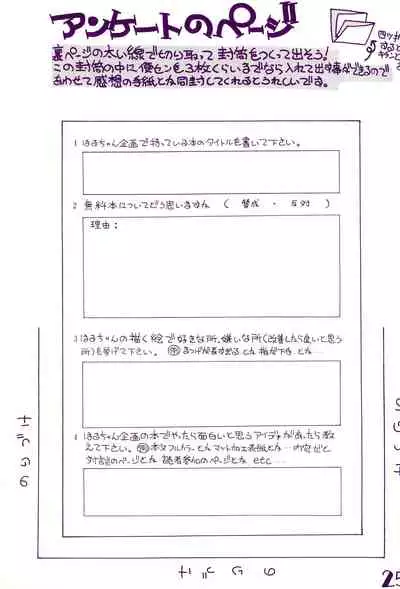 アンケートのページ
裏ページの太い線で切り取って封筒をつくって出そう!
この封筒の中に便センを3枚くらいまでなら入れて出す事ができるので
あわせて感想の手紙とか同封してくれるとうれしいです。
1 はるちゃん企画で持っている本のタイトルを書いて下さい。
2 無料本についてどう思いますか ( 賛成 ・ 反対 )
理由:
3 はるちゃんの描く絵で好きな所、嫌いな所(改善したら良いと思う
所)を挙げて下さい。
4 はるちゃん企画の本でやったら面白いと思うアイデアがあったら教
えて下さい。 例 本文フルカラーとかマット加工表紙とか…内容だと
対談のページとか 読者参加のページとか etc…
のりづけ
のりづけ
のりづけ
25